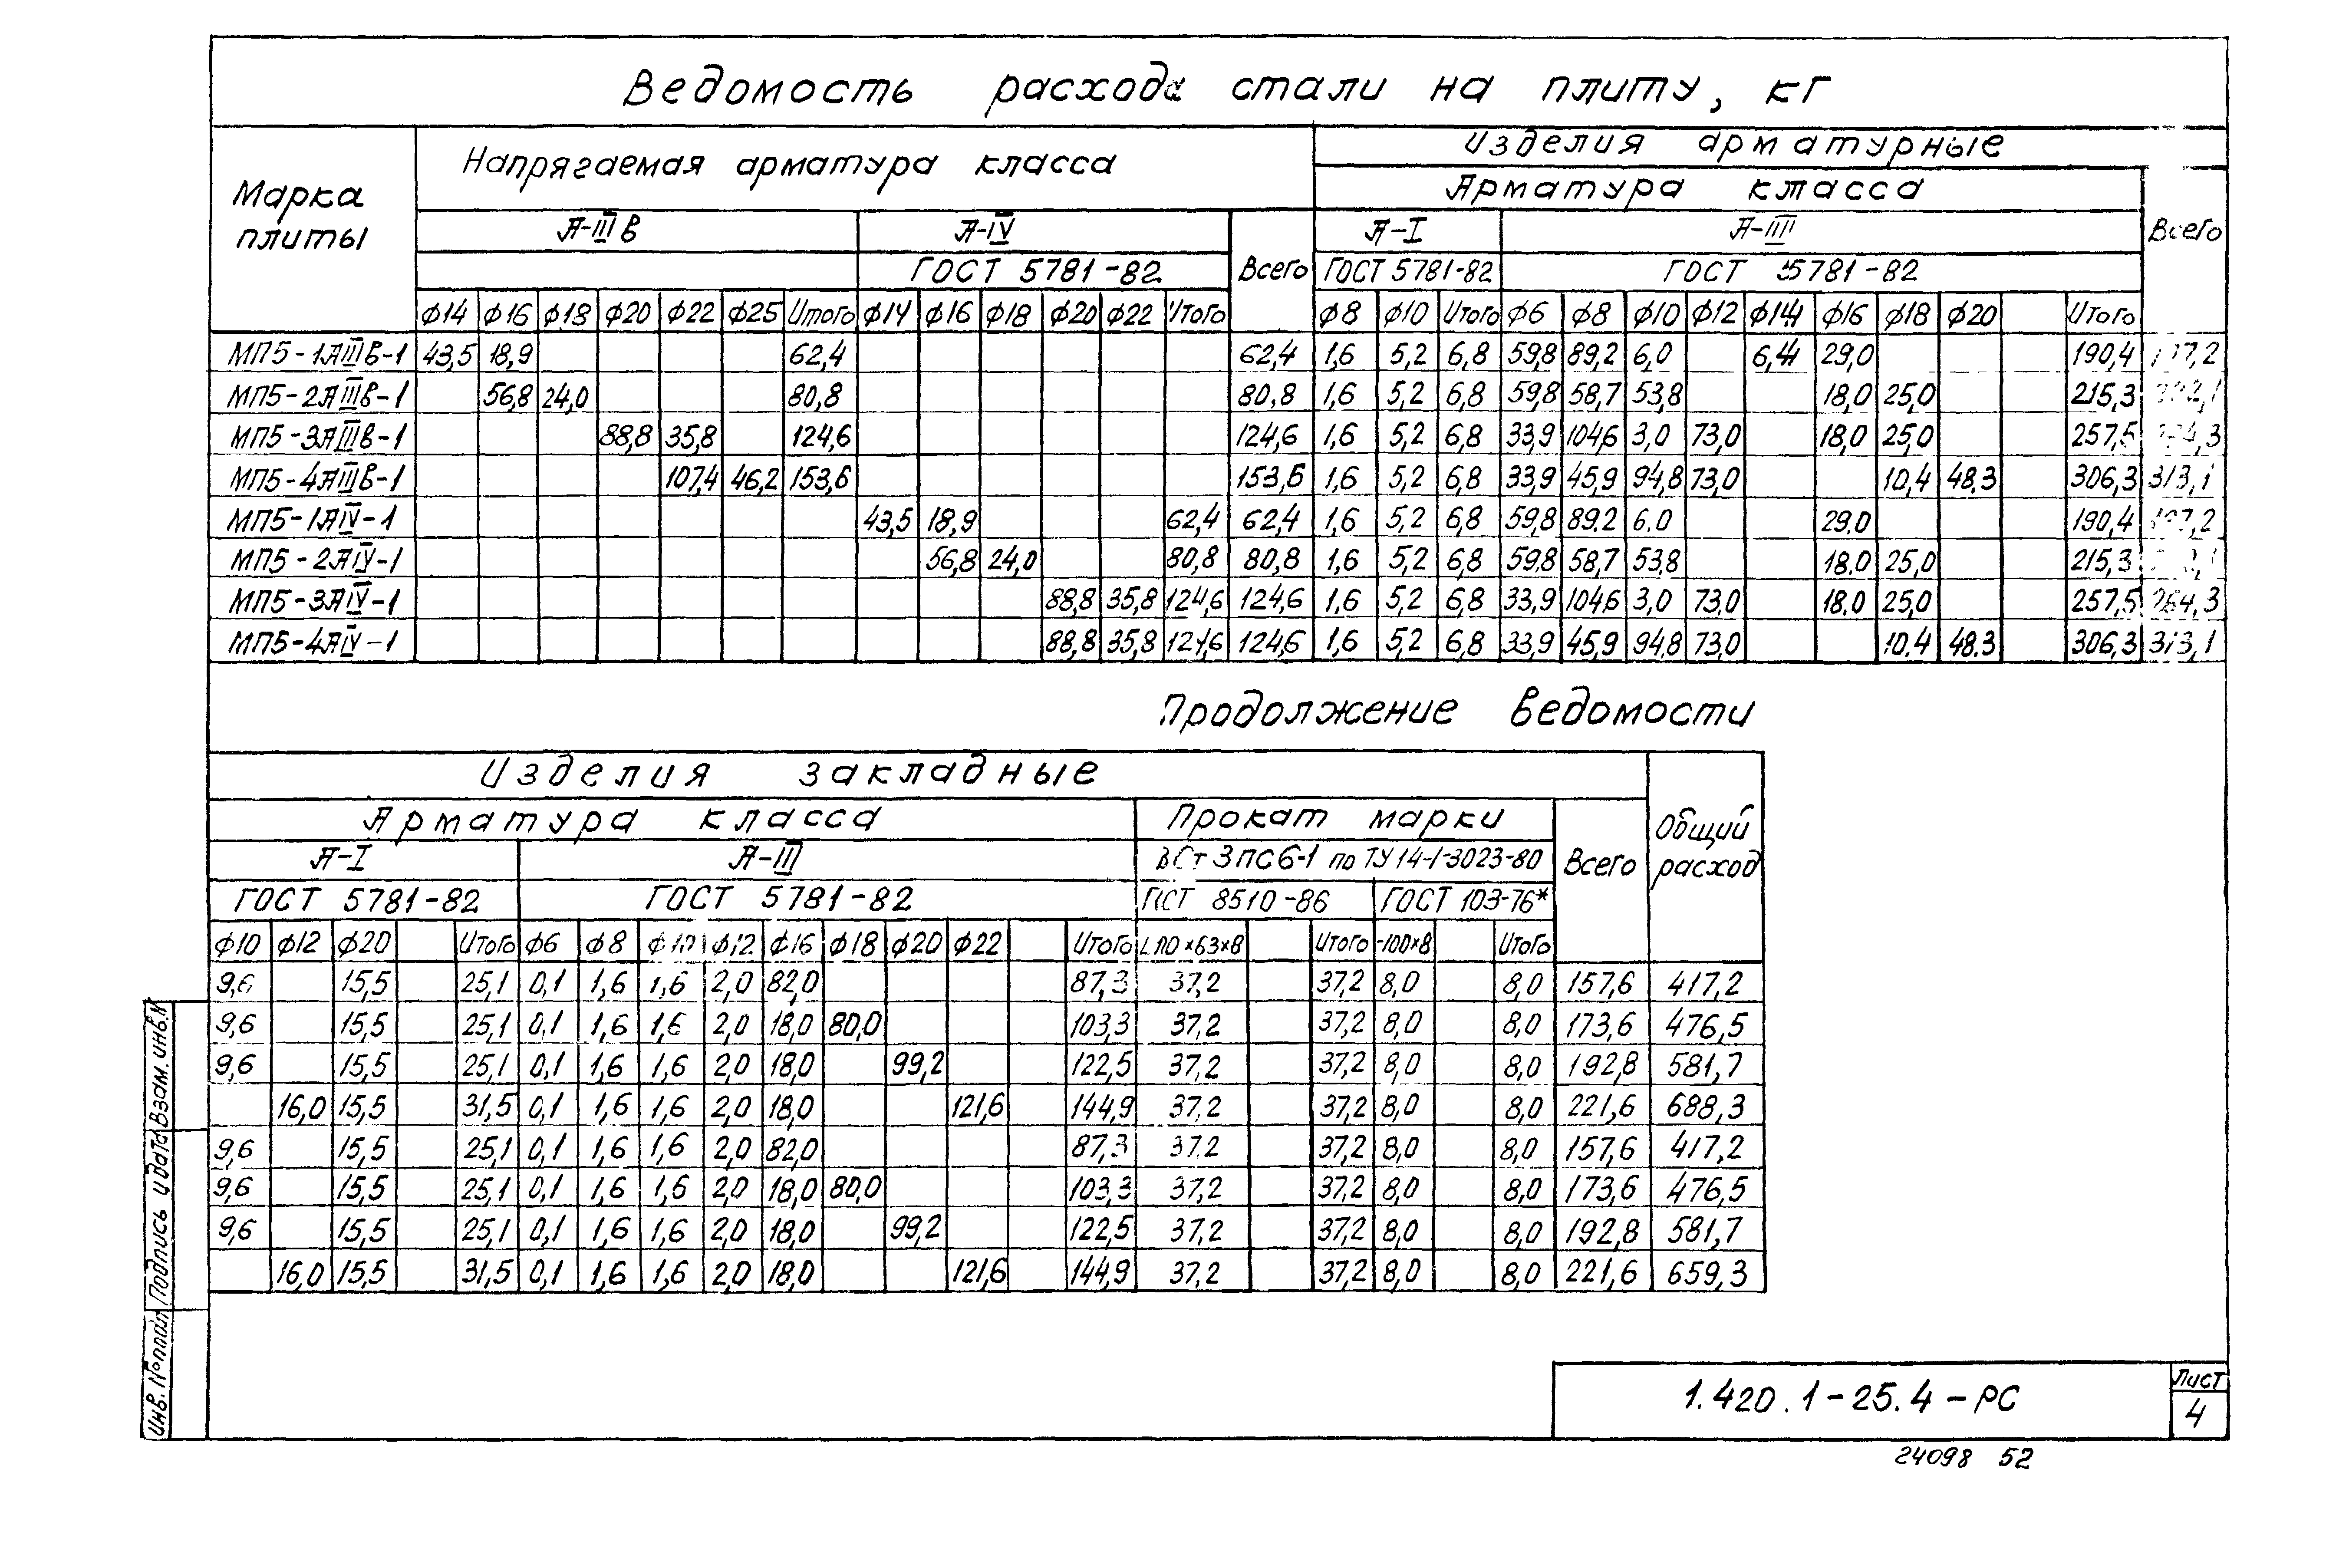 Ведомость расхода стали на плиту, кг
Марка плиты
Напрягаемая арматура класса
Изделия арматурные
Арматура класса
А-IIIв А-IV Всего А-I А-III Всего
ГОСТ 5781-82 ГОСТ 5781-82 ГОСТ 5781-82
ф14 ф16 ф18 ф20 ф22 ф25 Итого ф14 ф16 ф18 ф20 ф22 Итого ф8 ф10 Итого ф6 ф8 ф10 ф12 ф14 ф16 ф18 ф20 Итого
МП5-1АIIIв-1 43,5 18,9 62,4 62,4 1,6 5,2 6,8 59,8 89,2 6,0 6,4 29,0 190,4
МП5-2АIIIв-1 56,8 24,0 80,8 80,8 1,6 5,2 6,8 59,8 58,7 53,8 18,0 25,0 215,3
МП5-3АIIIв-1 88,8 35,8 124,6 124,6 1,6 5,2 6,8 33,9 104,6 3,0 73,0 18,0 25,0 257,5
МП5-4АIIIв-1 107,4 46,2 153,6 153,6 1,6 5,2 6,8 33,9 45,9 94,8 73,0 10,4 48,3 306,3 313,1
МП5-1АIV-1 43,5 18,9 62,4 62,4 1,6 5,2 6,8 59,8 89.2 6.0 29.0 190,4
МП5-2АIV-1 56,8 24,0 80,8 80,8 1,6 5,2 6,8 59,8 58,7 53,8 18.0 25,0 215,3
МП5-3АIV-1 88,8 35,8 124,6 124,6 1,6 5,2 6,8 33,9 104,6 3,0 73,0 18,0 25,0 257,5 264,3
МП5-4АIV-1 88,8 35,8 124,6 124,6 1,6 5,2 6,8 33,9 45,9 94,8 73,0 10.4 48.3 306,3 313,1
Продолжение ведомости
Изделия закладные
Общий расход
Арматура класса Прокат марки Всего
А-I А-III ВСт3пс6-1 по ТУ14-1-3023-80
ГОСТ 5781-82 ГОСТ 5781-82 ГОСТ 8510-86 ГОСТ 103-76*
ф10 ф12 ф20 Итого ф6 ф8 ф10 ф12 ф16 ф18 ф20 ф22 Итого L110×63×8 Итого -100×8 Итого
9,6 15,5 25,1 0,1 1,6 1,6 2,0 82,0 87,3 37,2 37,2 8,0 8,0 157,6 417,2
9,6 15,5 25,1 0,1 1,6 1,6 2,0 18,0 80,0 103,3 37,2 37,2 8,0 8,0 173,6 476,5
9,6 15,5 25,1 0,1 1,6 1,6 2,0 18,0 99,2 122,5 37,2 37,2 8,0 8,0 192,8 581,7
16,0 15,5 31,5 0,1 1,6 1,6 2,0 18,0 121,6 144,9 37,2 37,2 8,0 8,0 221,6 688,3
9,6 15,5 25,1 0,1 1,6 1,6 2,0 82,0 87,3 37.2 37,2 8,0 8,0 157,6 417,2
9,6 15,5 25,1 0,1 1,6 1,6 2,0 18,0 80,0 103,3 37,2 37,2 8,0 8,0 173,6 476,5
9,6 15,5 25,1 0,1 1,6 1,6 2,0 18,0 99,2 122,5 37,2 37,2 8,0 8,0 192,8 581,7
16,0 15,5 31,5 0,1 1,6 1,6 2,0 18,0 121,6 144,9 37,2 37,2 8,0 8,0 221,6 659,3
Инв. №подл Подпись и дата Взам. инв.N
1.420.1-25.4-РС
Лист
4
24098 52